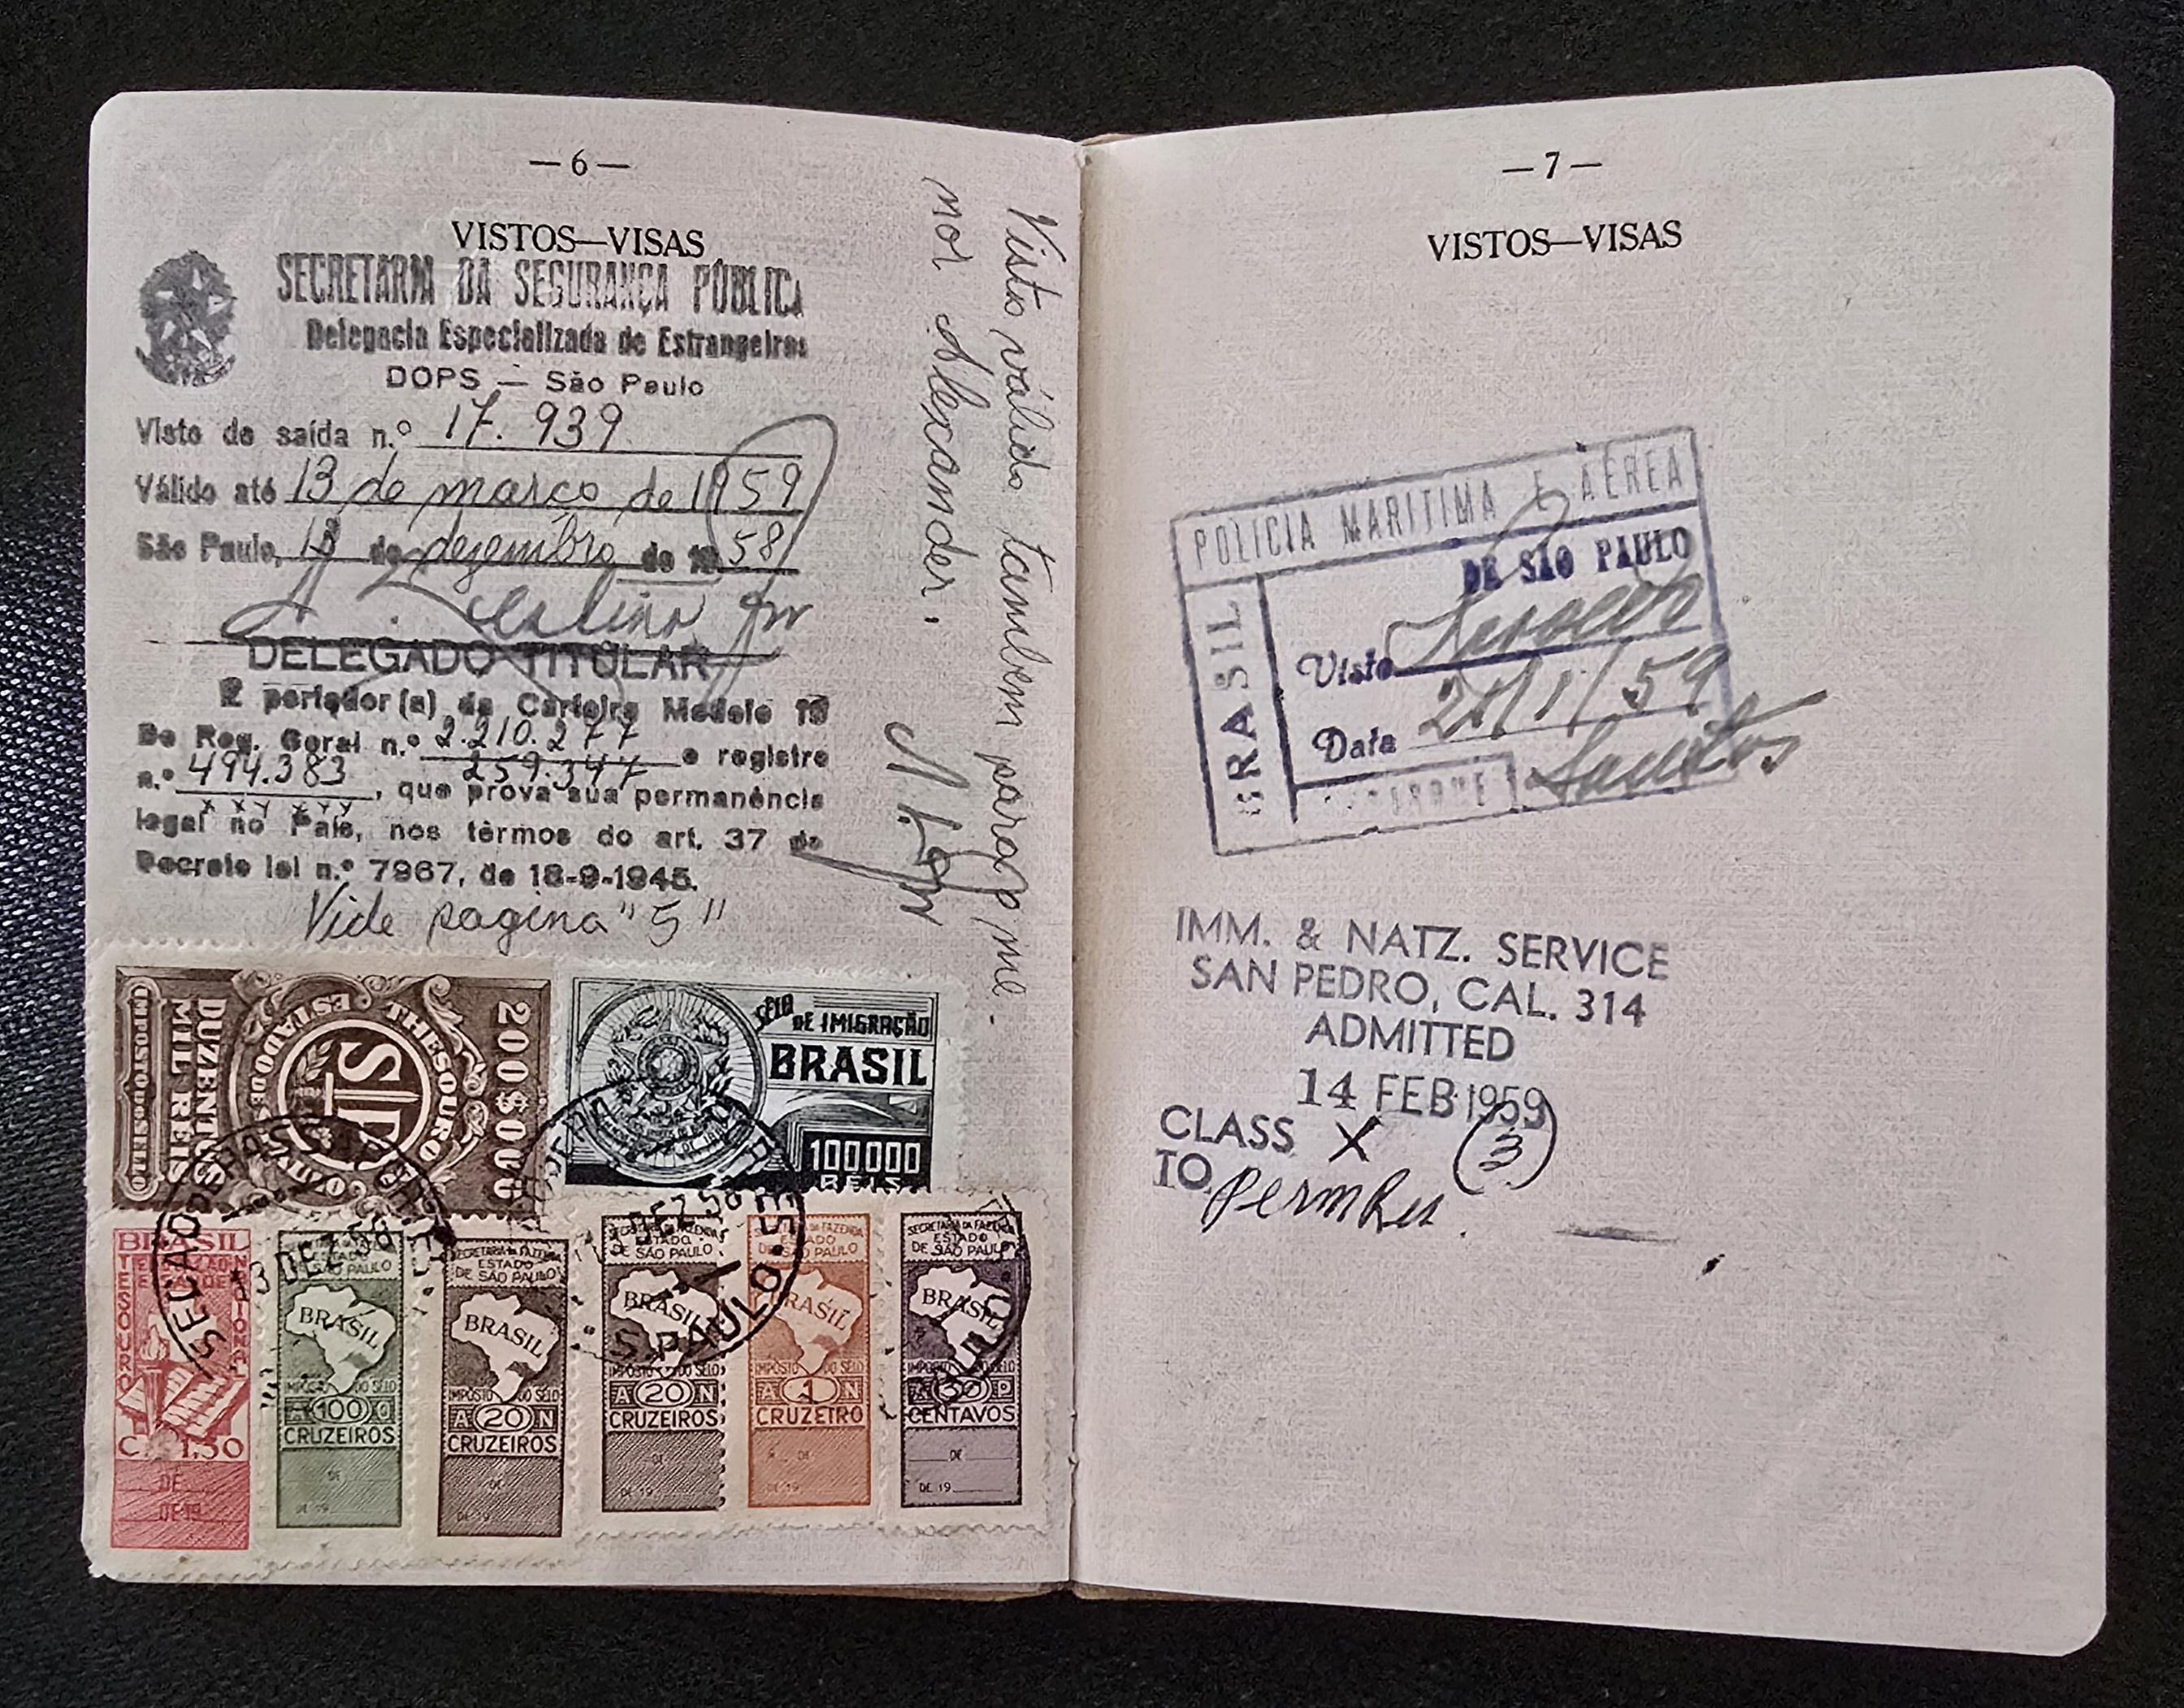 — 6 —
VISTOS—VISAS
SECRETARIA DA SEGURANÇA PÚBLICA
Delegacia Especializada de Estrangeiros
DOPS — São Paulo
Visto de saída n.º 17.939
Válido até 13 de março de 1959
São Paulo, de dezembro de 1958
DELEGADO TITULAR
É portador (a) da Carteira Modelo 19
De Reg. Geral n.º 2.210.277 e registro
n.º 494.383 259.347, que prova sua permanência
legal no País, nos têrmos do art. 37 do
Decreto lei n.º 7967, de 18-9-1945.
Vide pagina "5"
Visto válido tambem para o me-
nor Alexander.
200$000
THESOURO
ESTADO DE
SP
DUZENTOS
MIL REIS
IMPOSTO DO SELLO
SELO
DE IMIGRAÇÃO
BRASIL
100000
REIS
13 DEZ 58
DEZ 58
S. PAULO
BRASIL
TESOURO
1,50
DE
DE 19
SECRETARIA DA FAZENDA
ESTADO
DE SÃO PAULO
BRASIL
IMPOSTO DO SELO
A 100 O
CRUZEIROS
DE
DE 19
SECRETARIA DA FAZENDA
ESTADO
DE SÃO PAULO
BRASIL
IMPOSTO DO SELO
A 20 N
CRUZEIROS
DE
DE 19
SECRETARIA DA FAZENDA
ESTADO
DE SÃO PAULO
BRASIL
IMPOSTO DO SELO
A 20 N
CRUZEIROS
DE
DE 19
SECRETARIA DA FAZENDA
ESTADO
DE SÃO PAULO
BRASIL
IMPOSTO DO SELO
A 1 N
CRUZEIRO
DE
DE 19
SECRETARIA DA FAZENDA
ESTADO
DE SÃO PAULO
BRASIL
IMPOSTO DO SELO
CENTAVOS
DE
DE 19
— 7 —
VISTOS—VISAS
POLICIA MARITIMA E AÉREA
DE SÃO PAULO
BRASIL
Visto
Data /1/59
Santos
IMM. & NATZ. SERVICE
SAN PEDRO, CAL. 314
ADMITTED
14 FEB 1959
CLASS X 3
TO Perm Res.